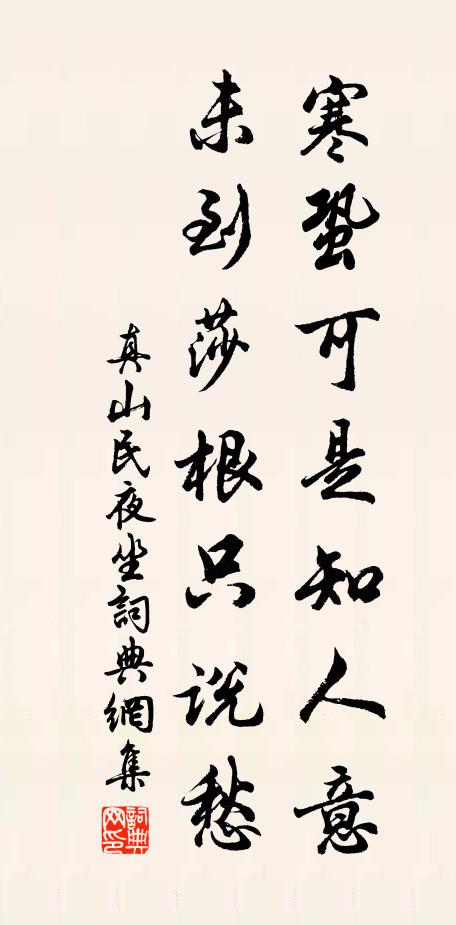 寒蛩可是知人意
未到莎根只説愁
真山民夜坐詞典網集
詞典網印